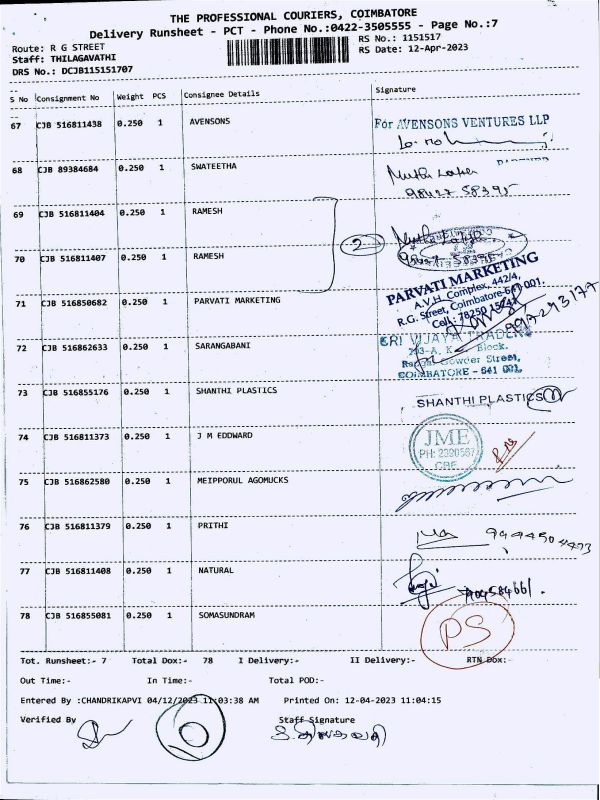 THE PROFESSIONAL COURIERS, COIMBATORE
Delivery Runsheet - PCT - Phone No.:0422-3505555 - Page No.:7
Route: R G STREET
RS No.: 1151517
Staff: THILAGAVATHI
RS Date: 12-Apr-2023
DRS No.: DCJB115151707
S No Consignment No Weight PCS Consignee Details Signature
67 CJB 516811438 0.250 1 AVENSONS
For AVENSONS VENTURES LLP
68 CJB 89384684 0.250 1 SWATEETHA
PARTNER
98427 58395
69 CJB 516811404 0.250 1 RAMESH
2
70 CJB 516811407 0.250 1 RAMESH
71 CJB 516850682 0.250 1 PARVATI MARKETING
PARVATI MARKETING
A.V.H. Complex, 442/4,
R.G. Street, Coimbatore-641 001.
Cell: 78250
72 CJB 516862633 0.250 1 SARANGABANI
SRI VIJAYA TRADERS
Block.
Gowder Street,
COIMBATORE - 641 001.
73 CJB 516855176 0.250 1 SHANTHI PLASTICS
SHANTHI PLASTICS
74 CJB 516811373 0.250 1 J M EDDWARD
JME
PH: 2390567
CBE
75 CJB 516862580 0.250 1 MEIPPORUL AGOMUCKS
76 CJB 516811379 0.250 1 PRITHI
77 CJB 516811408 0.250 1 NATURAL
78 CJB 516855081 0.250 1 SOMASUNDRAM
PS
Tot. Runsheet:- 7 Total Dox:- 78 I Delivery:- II Delivery:- RTN Dox:-
Out Time:- In Time:- Total POD:-
Entered By :CHANDRIKAPVI 04/12/2023 11:03:38 AM Printed On: 12-04-2023 11:04:15
Verified By Staff Signature